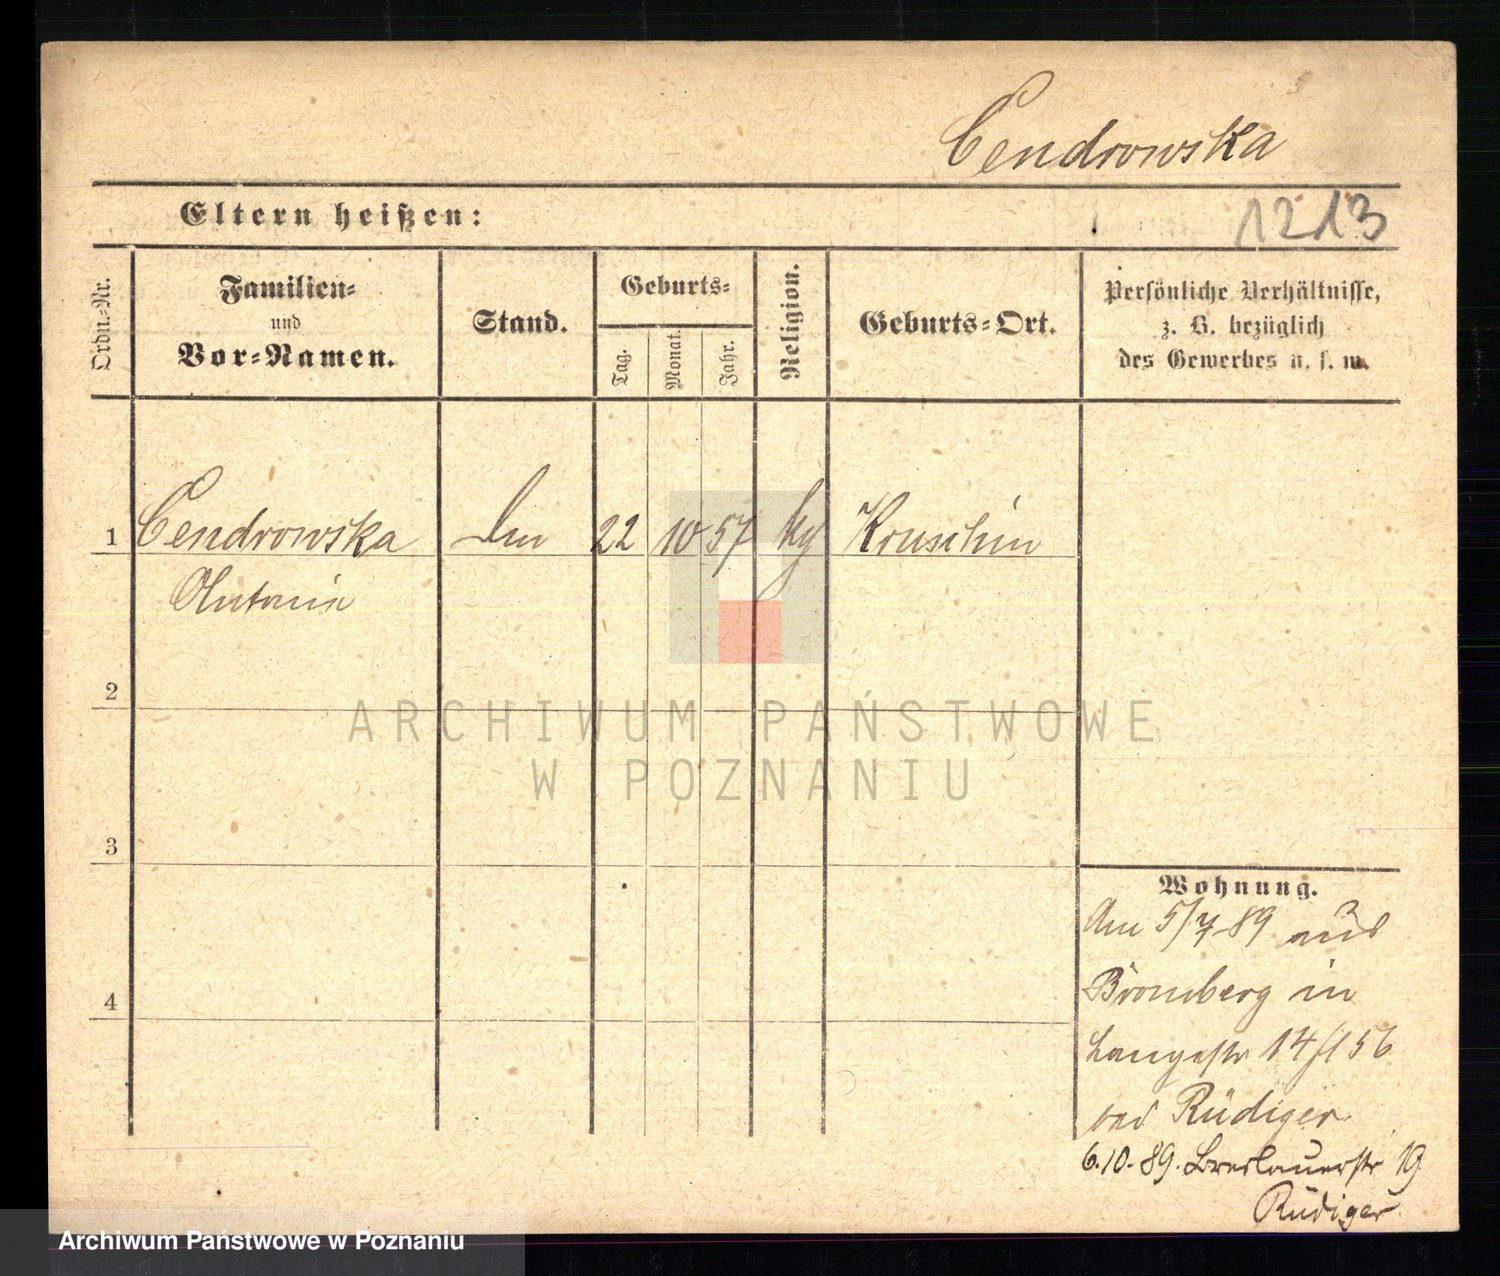 Cendrowska
Eltern heißen:
1213
Ordn.-Nr.
Familien-
und
Vor-Namen.
Stand.
Geburts-
Tag.
Monat.
Jahr.
Religion.
Geburts-Ort.
Persönliche Verhältnisse,
z. B. bezüglich
des Gewerbes u. s. w.
1 Cendrowska 22 10 57 Kruschin
Antonia
2
3
4
ARCHIWUM PAŃSTWOWE
W POZNANIU
Wohnung.
Am 5/7 89 aus
Bromberg in
Langestr 14/156
bei Rüdiger
6.10.89. Breslauerstr 19
Rüdiger
Archiwum Państwowe w Poznaniu